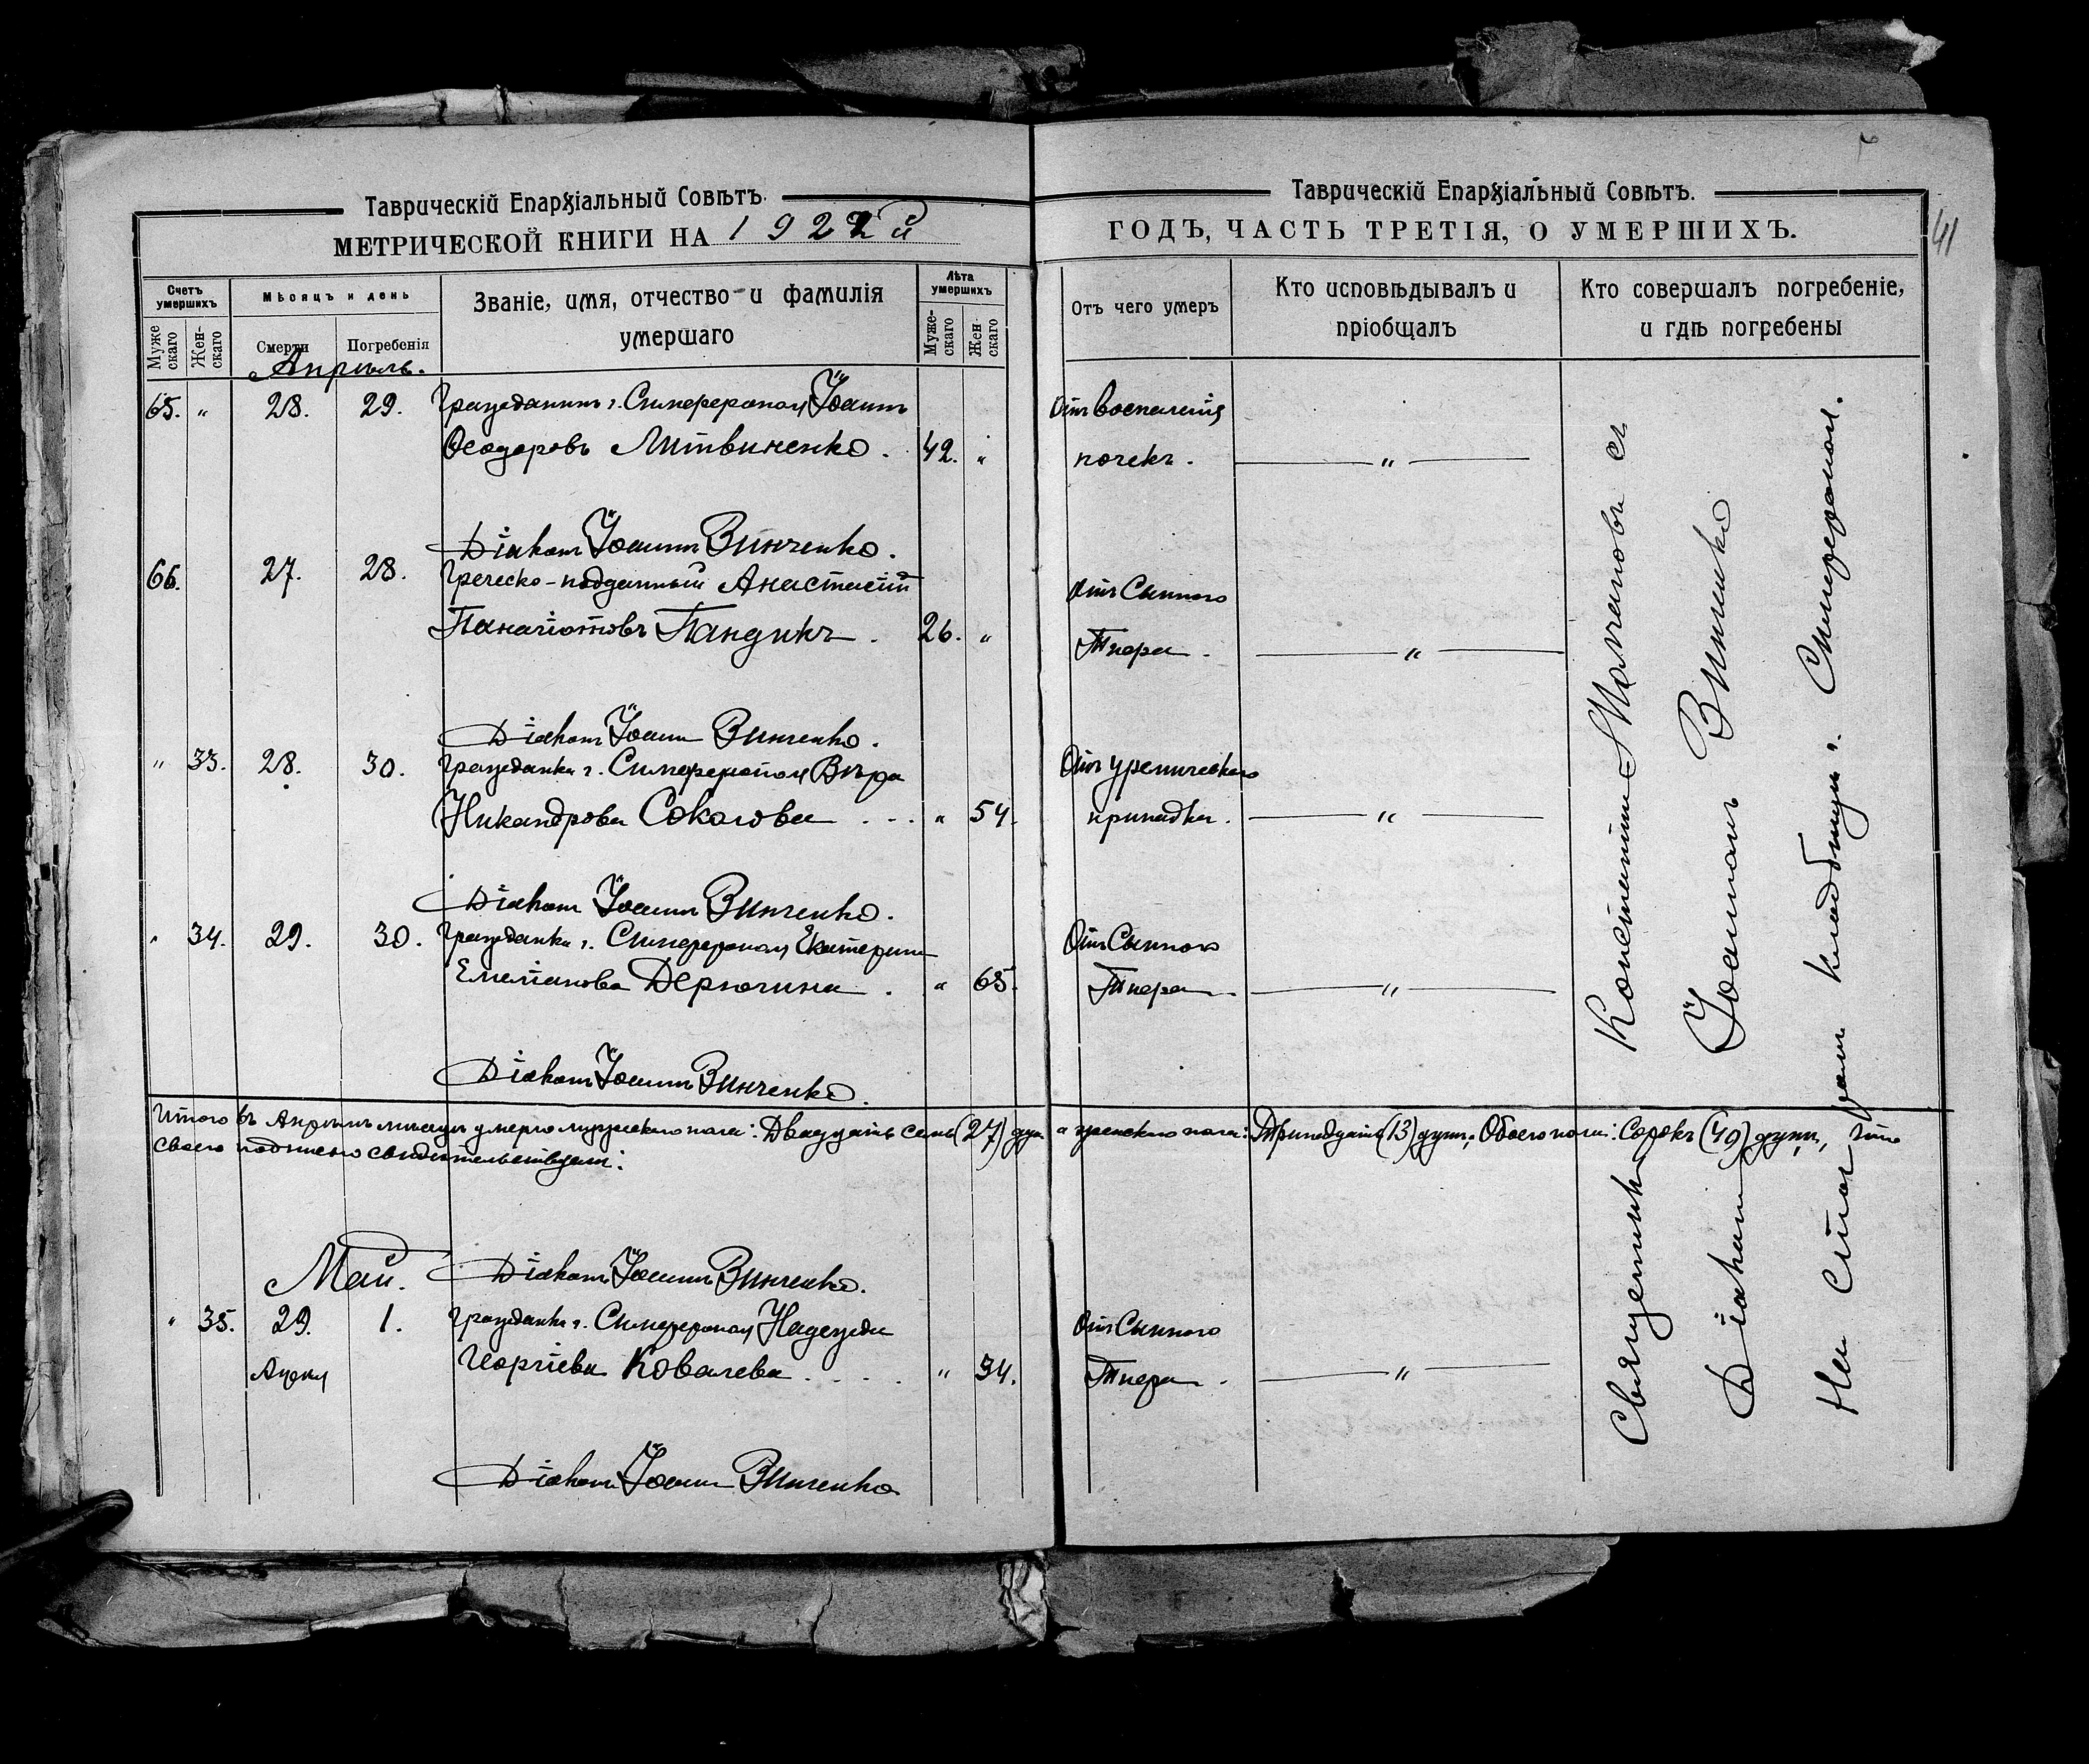 Таврическій Епархіальный Совѣтъ.
МЕТРИЧЕСКОЙ КНИГИ НА 1922й
Счетъ умершихъ
Мѣсяцъ и день
Званіе, имя, отчество и фамилія умершаго
Лѣта умершихъ
Мужескаго
Женскаго
Смерти
Погребенія
Мужескаго
Женскаго
Апрѣль.
65. " 28. 29. Гражданинъ г. Симферополя Іоаннъ
Ѳеодоровъ Литвиненко. 42. "
Діаконъ Іоаннъ Винченко.
66. 27. 28. Греческо-подданный Анастасій
Панаіотовъ Пандикъ. 26. "
Діаконъ Іоаннъ Винченко.
" 33. 28. 30. Гражданка г. Симферополя Вѣра
Никандрова Соколова . . . " 54.
Діаконъ Іоаннъ Винченко.
" 34. 29. 30. Гражданка г. Симферополя Екатерина
Емеліанова Дерюгина . " 65.
Діаконъ Іоаннъ Винченко.
Итого въ Апрѣлѣ мѣсяцѣ умерло мужескаго пола: Двадцать семь (27) душ
своею подписью свидѣтельствуемъ:
Май. Діаконъ Іоаннъ Винченко.
" 35. 29. 1. Гражданка г. Симферополя Надежда
Апрѣл Георгіева Ковалева . . . . " 34.
Діаконъ Іоаннъ Винченко
Таврическій Епархіальный Совѣтъ.
ГОДЪ, ЧАСТЬ ТРЕТІЯ, О УМЕРШИХЪ.
41
Отъ чего умеръ
Кто исповѣдывалъ и пріобщалъ
Кто совершалъ погребеніе, и гдѣ погребены
Отъ воспаленія
почекъ. "
Отъ Сыпного
Тифа. "
Отъ уремическаго
припадка. "
Отъ Сыпного
Тифа. "
а женскаго пола: Тринадцать (13) душъ, Обоего пола: Сорокъ (40) душъ, что
Отъ Сыпного
Тифа. "
Священникъ Константинъ Молчановъ съ
Діаконом Іоанномъ Винченко
На кладбищѣ г. Симферополя.